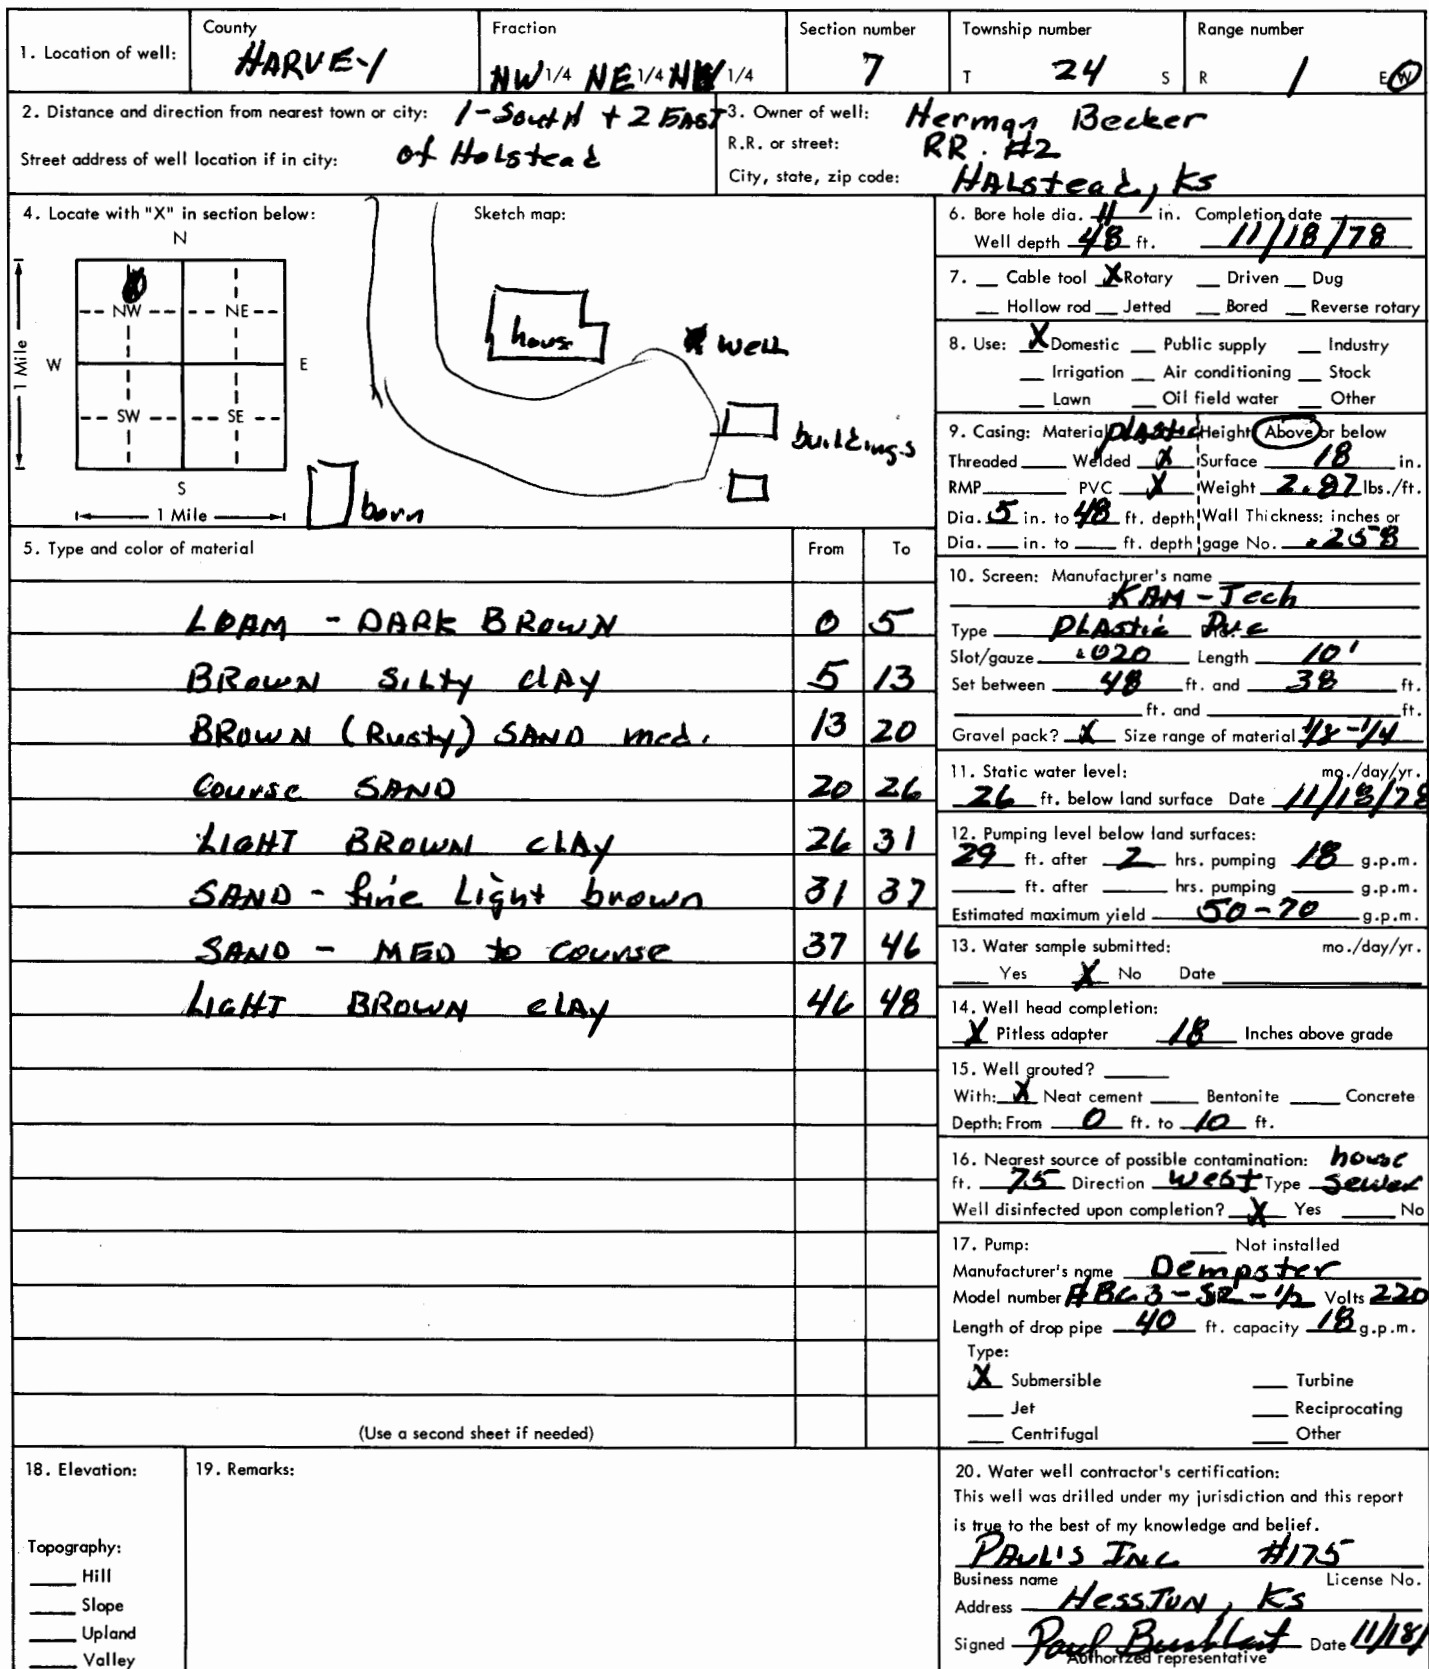 1. Location of well: County HARVEY Fraction NW 1/4 NE 1/4 NW 1/4 Section number 7 Township number T 24 S Range number R 1 E W
2. Distance and direction from nearest town or city: 1-South + 2 EAST
Street address of well location if in city: of Holstead
3. Owner of well: Herman Becker
R.R. or street: RR. #2
City, state, zip code: HALstead, Ks
4. Locate with "X" in section below:
N
NW NE
W E
SW SE
S
1 Mile
1 Mile
Sketch map:
house
well
buildings
barn
5. Type and color of material From To
LOAM - DARK BROWN 0 5
BROWN SILTY CLAY 5 13
BROWN (Rusty) SAND med. 13 20
Course SAND 20 26
LIGHT BROWN CLAY 26 31
SAND - fine Light brown 31 37
SAND - MED to Course 37 46
LIGHT BROWN CLAY 46 48
(Use a second sheet if needed)
6. Bore hole dia. 11 in. Completion date
Well depth 48 ft. 11/18/78
7. Cable tool X Rotary Driven Dug
Hollow rod Jetted Bored Reverse rotary
8. Use: X Domestic Public supply Industry
Irrigation Air conditioning Stock
Lawn Oil field water Other
9. Casing: Material plastic Height: Above or below
Threaded Welded X Surface 18 in.
RMP PVC X Weight 2.87 lbs./ft.
Dia. 5 in. to 48 ft. depth Wall Thickness: inches or
Dia. in. to ft. depth gage No. .258
10. Screen: Manufacturer's name
KAM-Tech
Type PLAstic Pvc
Slot/gauze .020 Length 10'
Set between 48 ft. and 38 ft.
ft. and ft.
Gravel pack? X Size range of material 1/8-1/4
11. Static water level: mo./day/yr.
26 ft. below land surface Date 11/18/78
12. Pumping level below land surfaces:
29 ft. after 2 hrs. pumping 18 g.p.m.
ft. after hrs. pumping g.p.m.
Estimated maximum yield 50-70 g.p.m.
13. Water sample submitted: mo./day/yr.
Yes X No Date
14. Well head completion:
X Pitless adapter 18 Inches above grade
15. Well grouted?
With: X Neat cement Bentonite Concrete
Depth: From 0 ft. to 10 ft.
16. Nearest source of possible contamination: house
ft. 75 Direction West Type Sewer
Well disinfected upon completion? X Yes No
17. Pump: Not installed
Manufacturer's name Dempster
Model number Volts 220
Length of drop pipe 40 ft. capacity 18 g.p.m.
Type:
X Submersible Turbine
Jet Reciprocating
Centrifugal Other
18. Elevation:
Topography:
Hill
Slope
Upland
Valley
19. Remarks:
20. Water well contractor's certification:
This well was drilled under my jurisdiction and this report
is true to the best of my knowledge and belief.
PAUL'S INC #175
Business name License No.
Address HESSTON, Ks
Signed Paul Date 11/18/
Authorized representative